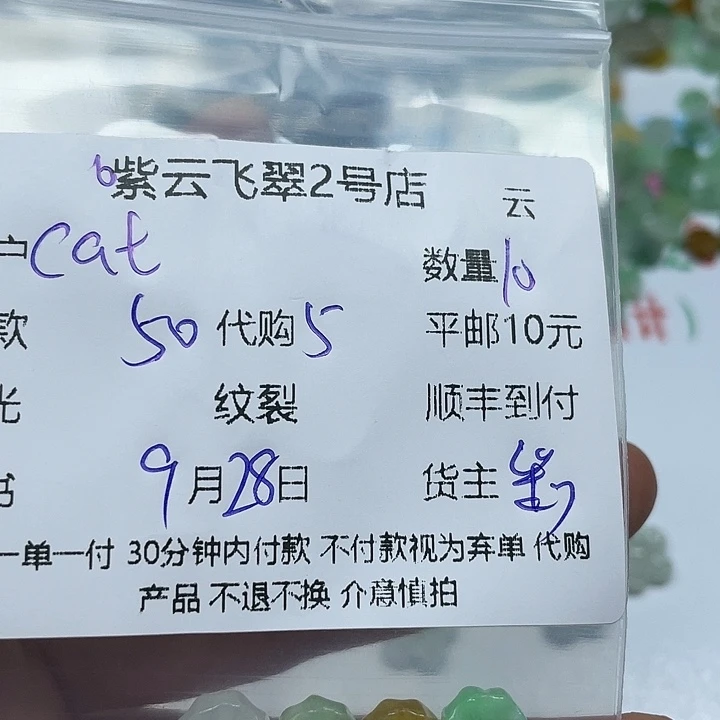 紫云飞翠2号店 云
户 cat 数量 10
款 50 代购 5 平邮10元
光 纹裂 顺丰到付
书 9月28日 货主
一单一付 30分钟内付款 不付款视为弃单 代购
产品 不退不换 介意慎拍